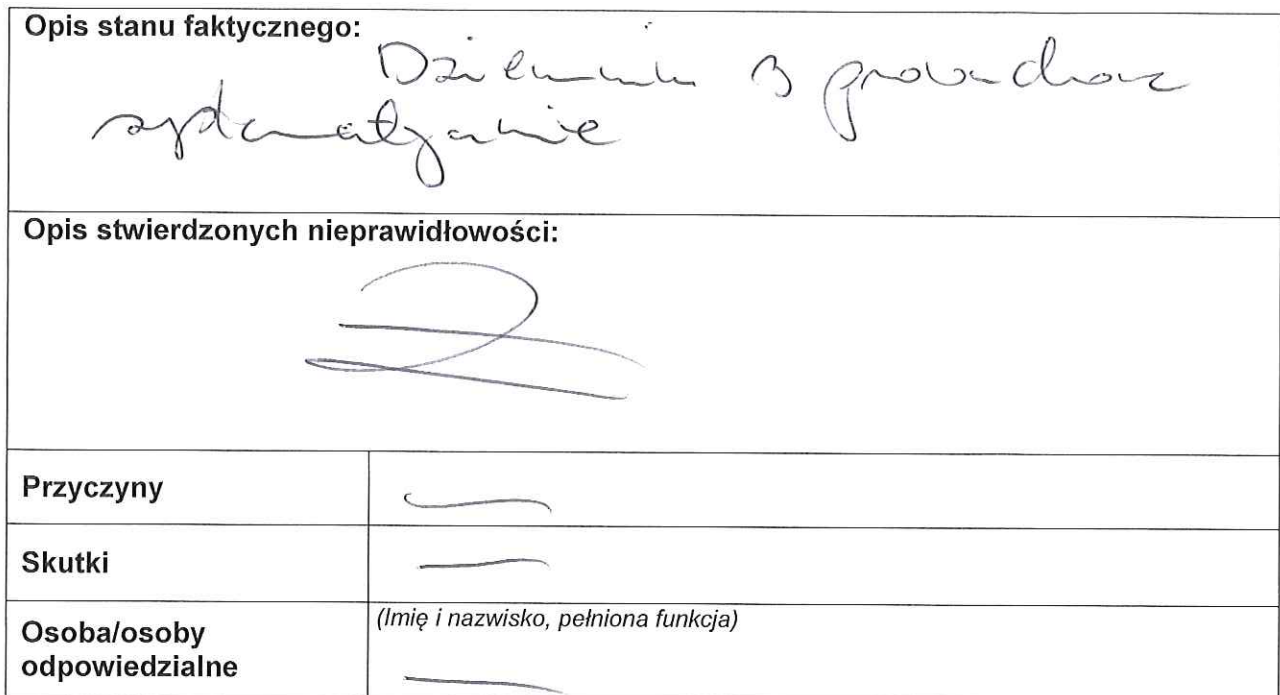 Opis stanu faktycznego:
Dzienniki są prowadzone
systematycznie
Opis stwierdzonych nieprawidłowości:
Przyczyny
Skutki
Osoba/osoby
odpowiedzialne
(Imię i nazwisko, pełniona funkcja)